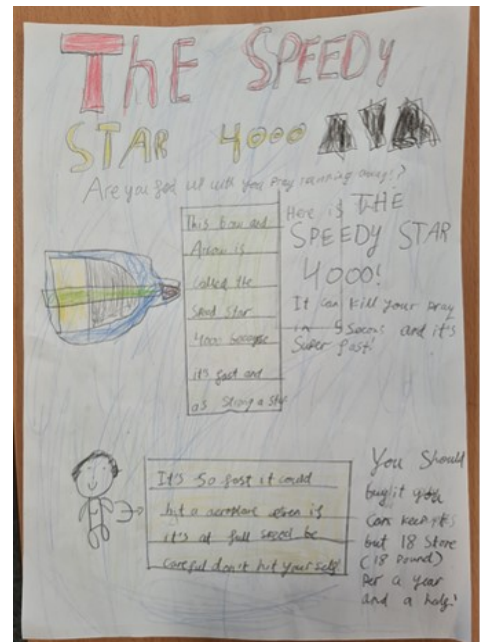 THE SPEEDY
STAR 4000
Are you fed up with you pray running away!?
This bow and
Arrow is
called the
Speed Star
4000 because
it's fast and
as Strong a star
Here is THE
SPEEDY STAR
4000!
It can kill your pray
in 5 Secons and it's
Super fast!
It's so fast it could
hit a aeroplane even if
it's at full speed be
careful don't hit your self
You Should
buy it you
can keep
but 18 Stone
(18 Pound)
Per a year
and a half!